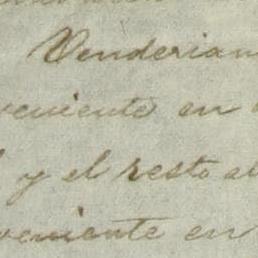 Venderian
veniente en
y el resto al
veniente en